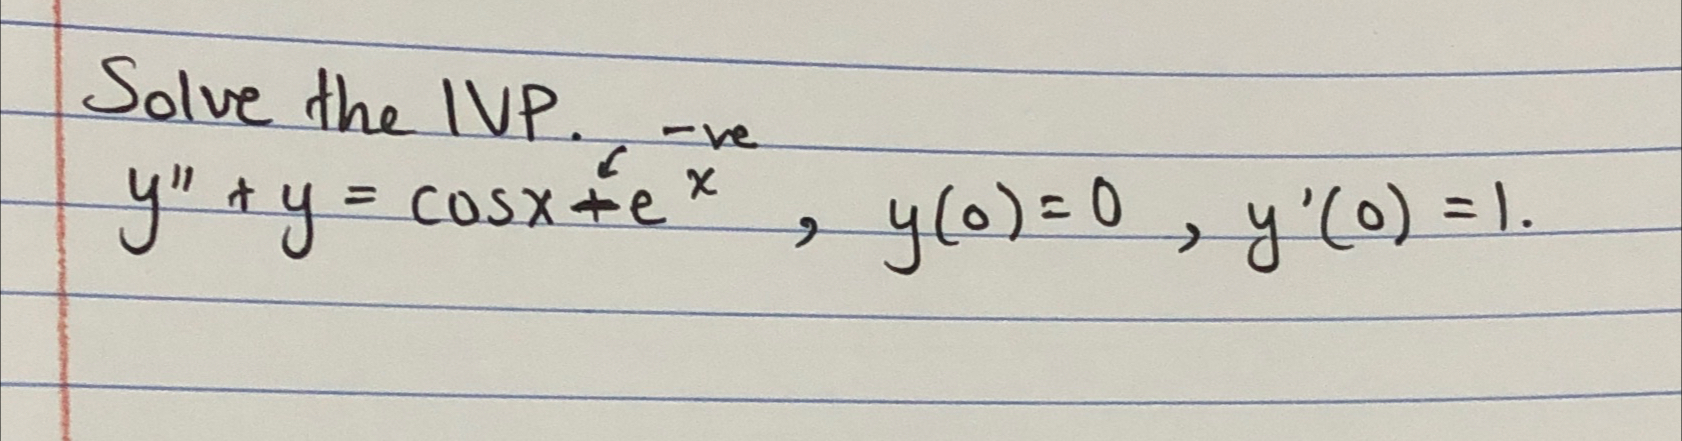 Solve the IVP. -ve
y" + y = cosx + e^x , y(0) = 0 , y'(0) = 1.